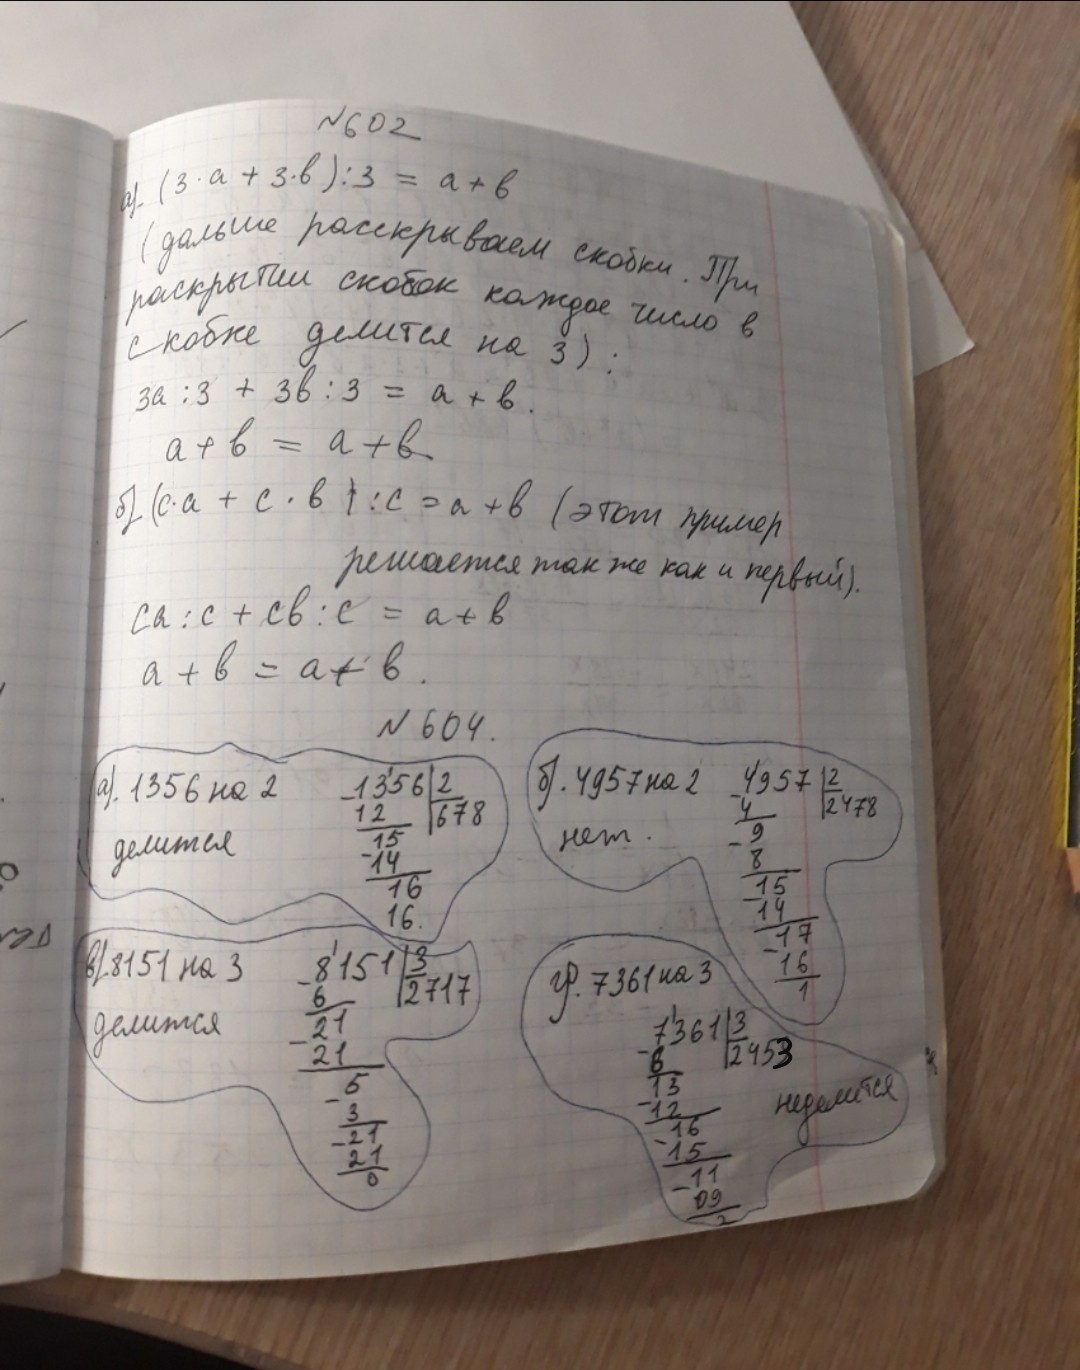 N602
а). (3·a + 3·b):3 = a+b
(дальше расскрываем скобки. При
раскрытии скобок каждое число в
скобке делится на 3):
3a:3 + 3b:3 = a+b.
a+b = a+b
б). (c·a + c·b):c = a+b (этот пример
решается так же как и первый).
ca:c + cb:c = a+b
a+b = a+b.
N604.
а). 1356 на 2
делится
-1356|2
12 678
15
-14
16
16.
б). 4957 на 2
нет.
-4957|2
4 2478
-9
8
-15
14
-17
16
1
в). 8151 на 3
делится
-8151|3
6 2717
-21
21
-5
3
-21
21
0
г). 7361 на 3
-7361|3
6 2453
13
-12
16
-15
-11
09
2
неделится